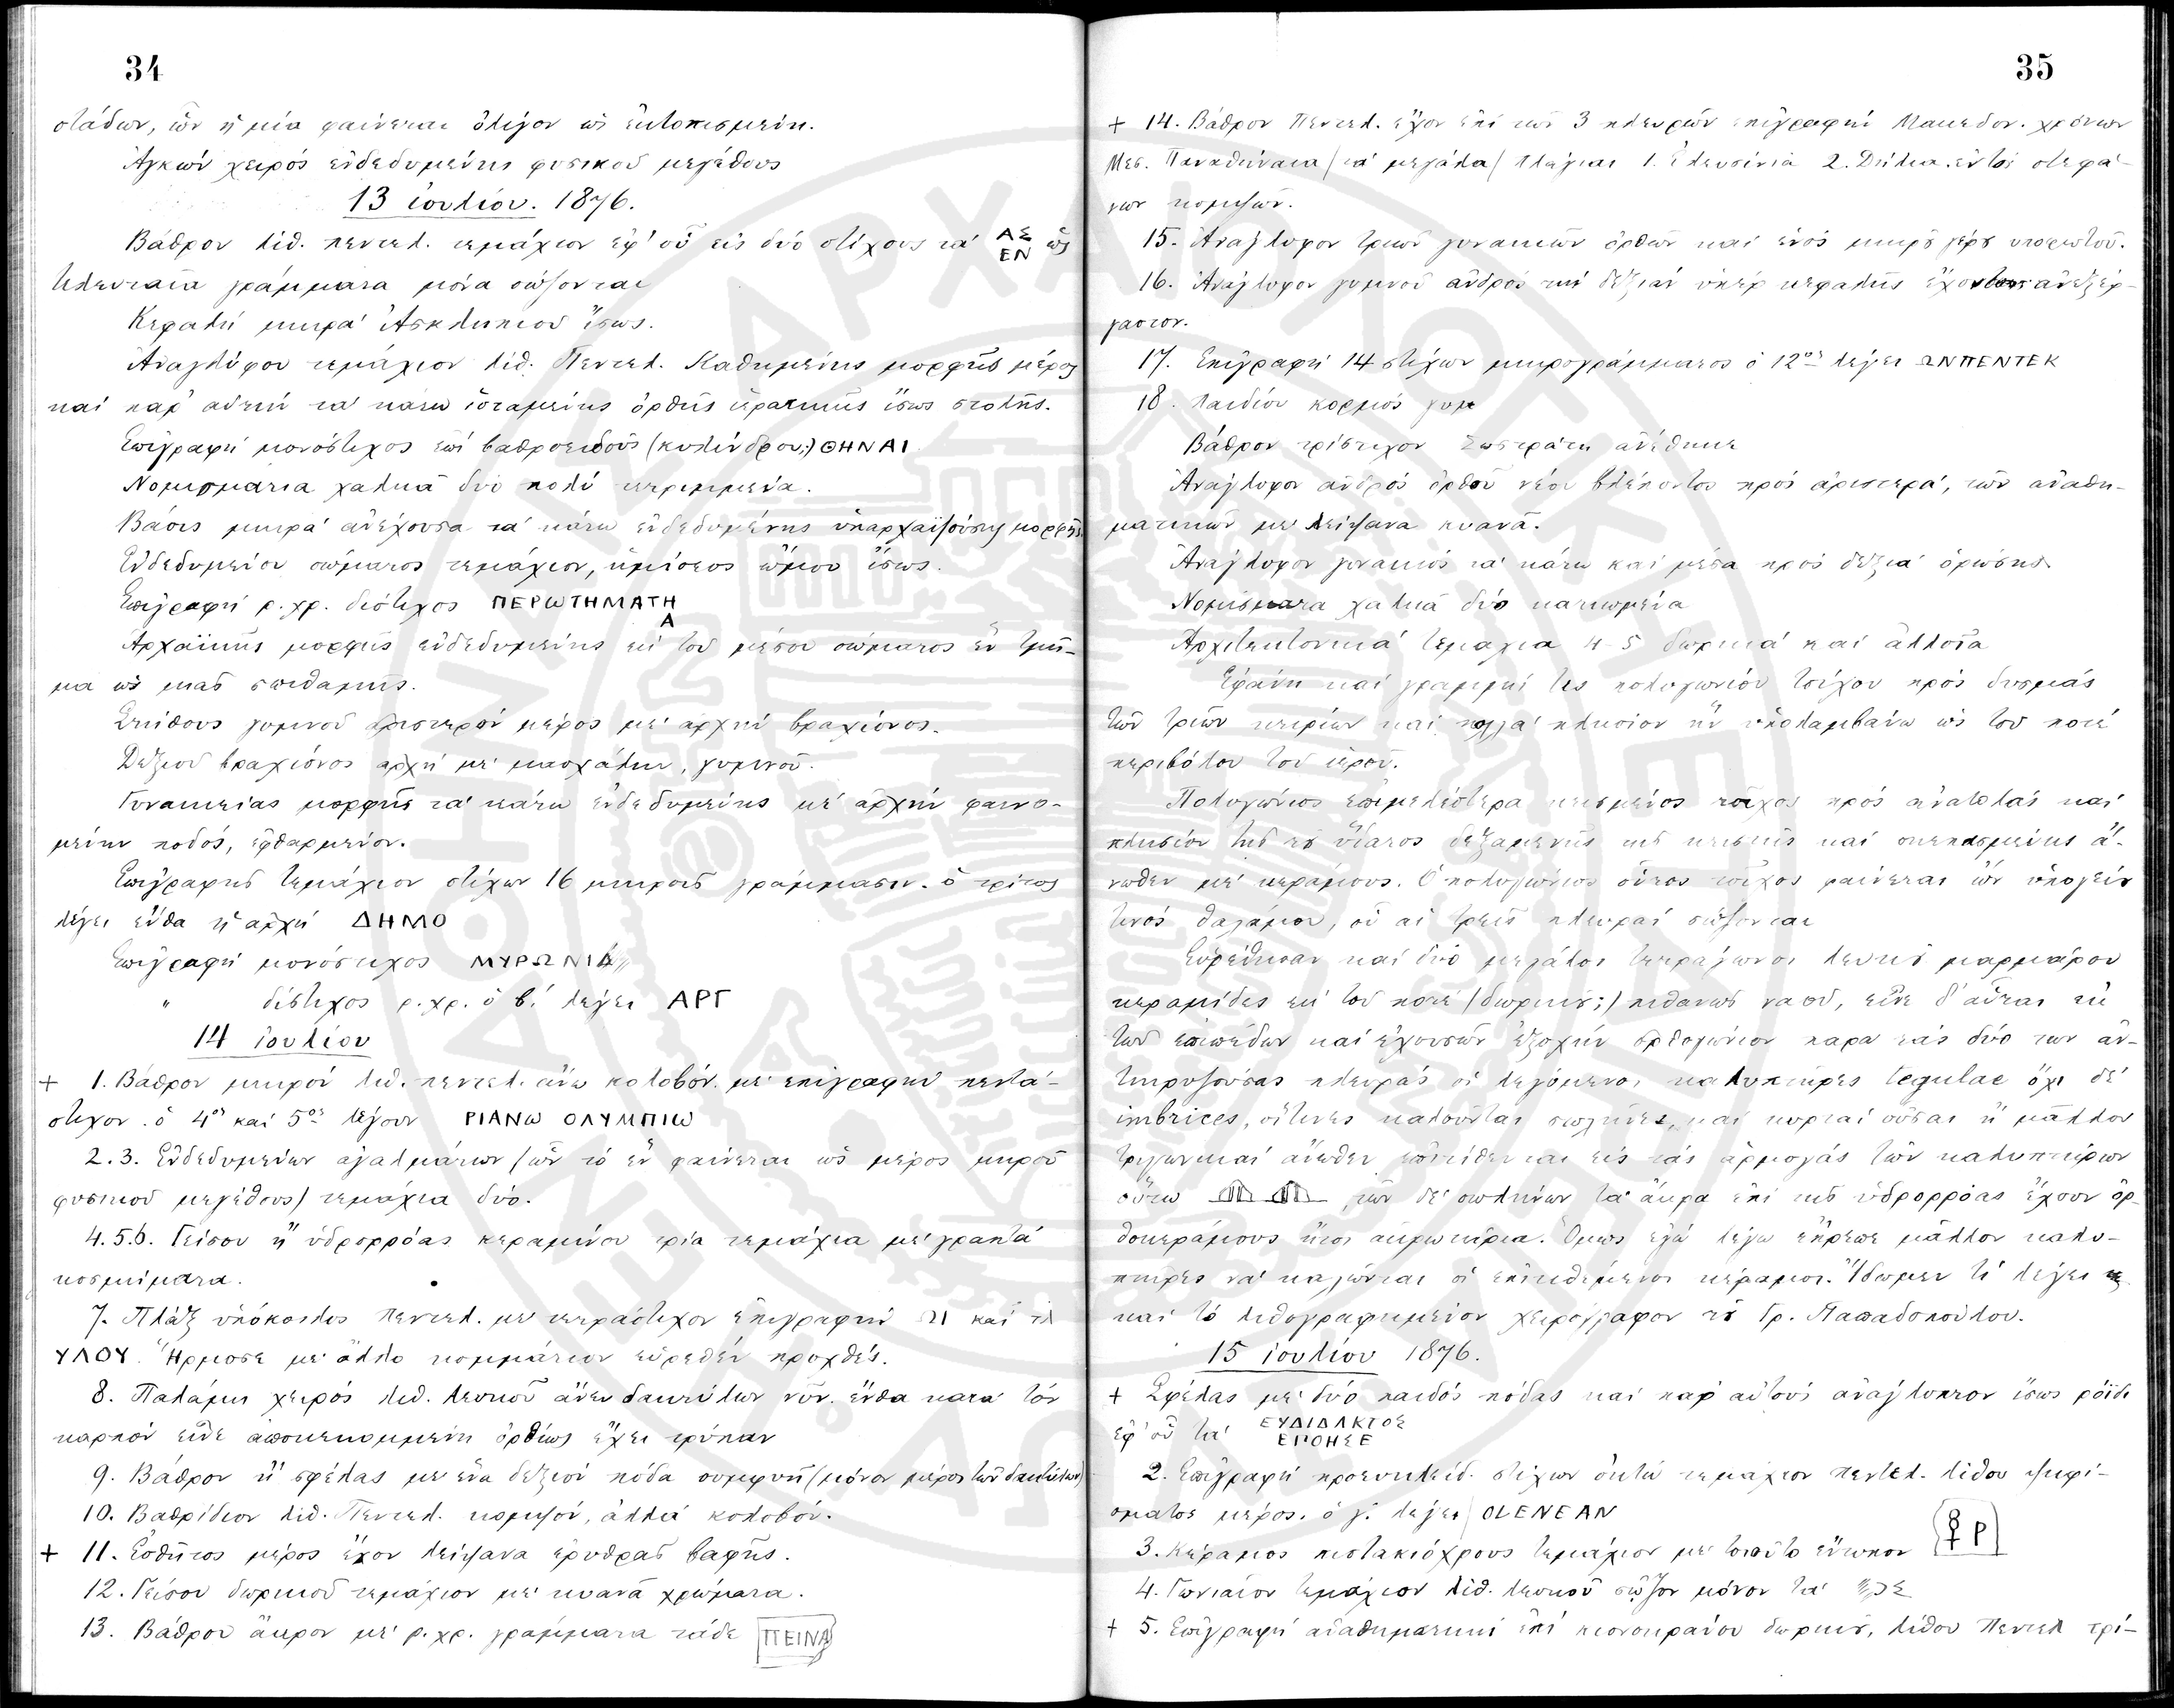 34
στάδων, ὧν ἡ μία φαίνεται ὀλίγον ὡς ἐκτοπισμένη.
Ἀγκών χειρός ἐνδεδυμένης φυσικοῦ μεγέθους
13 ἰουλίου. 1876.
Βάθρον λιθ. πεντελ. τεμάχιον ἐφ' οὗ εἰς δύο στίχους τά ΑΣ ΕΝ ὡς
τελευταῖα γράμματα μόνα σώζονται
Κεφαλή μικρά Ἀσκληπιοῦ ἴσως.
Ἀναγλύφου τεμάχιον λιθ. Πεντελ. Καθημένης μορφῆς μέρος
καί παρ' αὐτήν τά κάτω ἱσταμένης ὀρθῆς ἱερατικῆς ἴσως στολῆς.
Ἐπιγραφή μονόστιχος ἐπί βαθροειδοῦς (κυλίνδρου;) ΘΗΝΑΙ
Νομίσματα χαλκᾶ δύο πολύ τετριμμένα.
Βάσις μικρά ἀνέχουσα τά κάτω ἐνδεδυμένης ὑπαρχαϊζούσης μορφῆς
Ἐνδεδυμένου σώματος τεμάχιον, ἡμίσεος ὤμου ἴσως.
Ἐπιγραφή ρ. χρ. δίστιχος ΠΕΡΩΤΗΜΑΤΗ
Α
Ἀρχαϊκῆς μορφῆς ἐνδεδυμένης ἐκ τοῦ μέσου σώματος ἕν τμῆ-
μα ὡς μιᾶς σπιθαμῆς.
Στήθους γυμνοῦ ἀριστερόν μέρος μέ ἀρχήν βραχίονος.
Δεξιοῦ βραχίονος ἀρχή μέ μασχάλην, γυμνοῦ.
Γυναικείας μορφῆς τά κάτω ἐνδεδυμένης μέ ἀρχήν φαινο-
μένην ποδός, ἐφθαρμένον.
Ἐπιγραφῆς τεμάχιον στίχων 16 μικροῖς γράμμασιν. ὁ τρίτος
λέγει ἔνθα ἡ ἀρχή ΔΗΜΟ
Ἐπιγραφή μονόστιχος ΜΥΡΩΝΙΔ
" δίστιχος ρ. χρ. ὁ β.' λέγει ΑΡΓ
14 ἰουλίου
+ 1. Βάθρον μικρόν λιθ. πεντελ. ἄνω κολοβόν. μέ ἐπιγραφήν πεντά-
στιχον. ὁ 4ος καί 5ος λέγουν ΡΙΑΝΩ ΟΛΥΜΠΙΩ
2. 3. Ἐνδεδυμένων ἀγαλμάτων (ὧν τό ἕν φαίνεται ὡς μέρος μικροῦ
φυσικοῦ μεγέθους) τεμάχια δύο.
4. 5. 6. Γείσου ἤ ὑδρορρόας κεραμίνου τρία τεμάχια μέ γραπτά
κοσμήματα.
7. Πλάξ ὑπόκοιλος Πεντελ. μέ τετράστιχον ἐπιγραφήν καί
ΥΛΟΥ. Ἥρμοσε μέ ἄλλο κομμάτιον εὑρεθέν προχθές.
8. Παλάμη χειρός λιθ. λευκοῦ ἄνευ δακτύλων νῦν. ἔνθα κατά τόν
καρπόν εἶνε ἀποκεκομμένη ὀρθίως ἔχει τρύπαν
9. Βάθρον ἤ σφέλας μέ ἕνα δεξιόν πόδα συμφυῆ (μόνον μέρος τῶν δακτύλων)
10. Βαθρίδιον λιθ. Πεντελ. κομψόν, ἀλλά κολοβόν.
+ 11. Ἐσθῆτος μέρος ἔχον λείψανα ἐρυθρᾶς βαφῆς.
12. Γείσου δωρικοῦ τεμάχιον μέ κυανᾶ χρώματα.
13. Βάθρου ἄκρον μέ ρ. χρ. γράμματα τάδε ΠΕΙΝΑ
35
+ 14. Βάθρον Πεντελ. ἔχον ἐπί τῶν 3 πλευρῶν ἐπιγραφήν Μακεδον. χρόνων
Μεσ. Παναθήναια (τά μεγάλα) Πλάγιαι 1. Ἐλευσίνια 2. Δήλια. ἐντός στεφά-
νων κομψῶν.
15. Ἀνάγλυφον τριῶν γυναικῶν ὀρθῶν καί ἑνός μικροῦ
16. Ἀνάγλυφον γυμνοῦ ἀνδρός τήν δεξιάν ὑπέρ κεφαλῆς ἔχοντος ἀνεξέρ-
γαστον.
17. Ἐπιγραφή 14 στίχων μικρογράμματος ὁ 12ος λέγει ΩΝΠΕΝΤΕΚ
18. Παιδίου κορμός γυμ
Βάθρον τρίστιχον Σωστράτη ἀνέθηκε
Ἀνάγλυφον ἀνδρός ὀρθοῦ νέου βλέποντος πρός ἀριστερά, τῶν ἀναθη-
ματικῶν μέ λείψανα κυανᾶ.
Ἀνάγλυφον γυναικός τά κάτω καί μέσα πρός δεξιά ὁρώσης
Νομίσματα χαλκᾶ δύο κατιωμένα
Ἀρχιτεκτονικά τεμάχια 4-5 δωρικά καί ἀλλοῖα
Ἐφάνη καί γραμμή τις πολυγωνίου τοίχου πρός δυσμάς
τῶν τριῶν κτιρίων καί πλησίον ἥν ὑπολαμβάνω ὡς τοῦ ποτέ
περιβόλου τοῦ ἱεροῦ.
Πολυγώνιος ἐπιμελέστερα κτισμένος τοῖχος πρός ἀνατολάς καί
πλησίον τῆς τοῦ ὕδατος δεξαμενῆς τῆς κτιστῆς καί σκεπασμένης ἄ-
νωθεν μέ κεράμους. Ὁ πολυγώνιος οὗτος τοῖχος φαίνεται ὤν ὑπογείου
τινός θαλάμου, οὗ αἱ τρεῖς πλευραί σώζονται
Εὑρέθησαν καί δύο μεγάλοι τετράγωνοι λευκοῦ μαρμάρου
κεραμίδες ἐκ τοῦ ποτέ (δωρικοῦ;) πιθανῶς ναοῦ, εἶνε δ' αὗται ἐκ
τῶν ἐπιπέδων καί ἐχουσῶν ἐξοχήν ὀρθογώνιον παρά τάς δύο των ἀν-
τικρυζούσας πλευράς οἱ λεγόμενοι καλυπτῆρες tegulae ὄχι δέ
imbrices, οἵτινες καλοῦνται σωλῆνες, καί κυρταί οὖσαι ἤ μᾶλλον
τριγωνικαί ἄνωθεν ἐπιτίθενται εἰς τάς ἁρμογάς τῶν καλυπτήρων
οὕτω τῶν δέ σωλήνων τά ἄκρα ἐπί τῆς ὑδρορρόας ἔχουν ὀρ-
θοκεράμους ἤτοι ἀκρωτήρια. Ὅμως ἐγώ λέγω ἔπρεπε μᾶλλον καλυ-
πτῆρες νά καλῶνται οἱ ἐπιτιθέμενοι κέραμοι. Ἴδωμεν τί λέγει
καί τό λιθογραφημένον χειρόγραφον τοῦ Γρ. Παπαδοπούλου.
15 ἰουλίου 1876.
+ Σφέλας μέ δύο παιδός πόδας καί παρ' αὐτούς ἀνάγλυπτον ἴσως ρόϊδι
ἐφ' οὗ τά ΕΥΔΙΔΑΚΤΟΣ
ΕΠΟΗΣΕ
2. Ἐπιγραφή προευκλείδ. στίχων ὀκτώ τεμάχιον πεντελ. λίθου ψηφί-
σματος μέρος. ὁ γ.' λέγει OLENEAN
3. Κέραμος πιστακιόχρους τεμάχιον με τοιοῦτο ἔντυπον Ρ
4. Γωνιαῖον τεμάχιον λιθ. λευκοῦ σῶζον μόνον τά
+ 5. Ἐπιγραφή ἀναθηματική ἐπί κιονοκράνου δωρικοῦ, λίθου Πεντελ τρί-